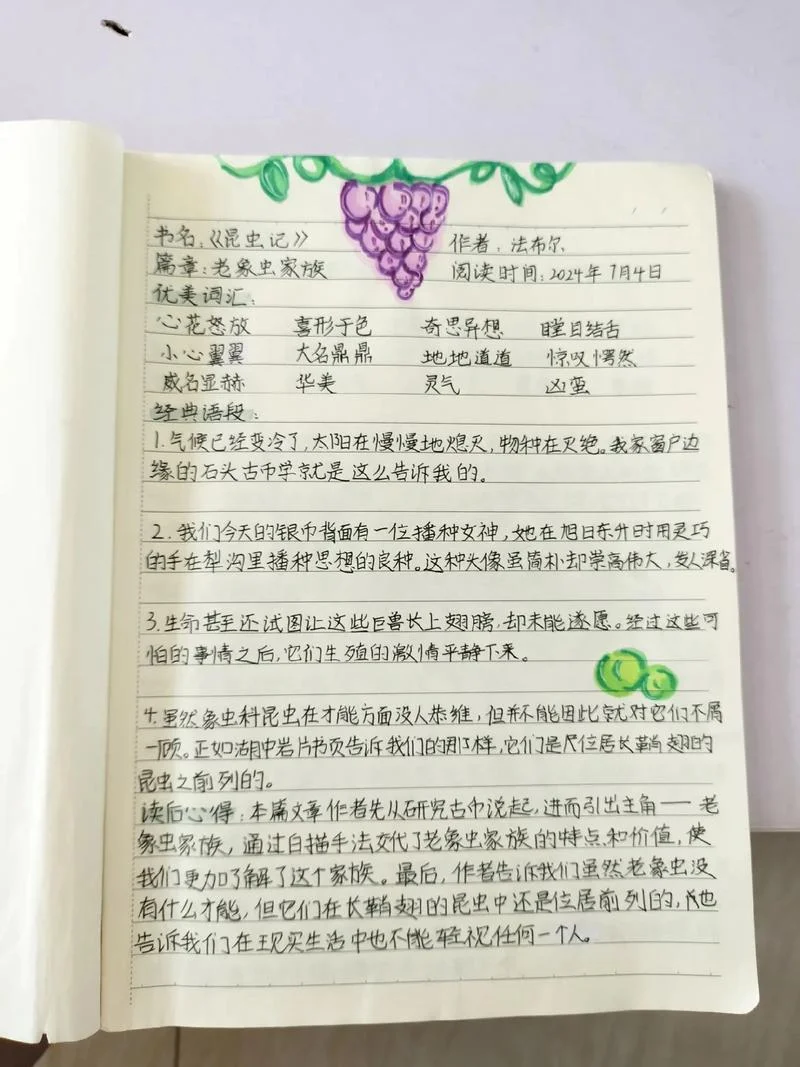 书名:《昆虫记》 作者:法布尔
篇章:老象虫家族 阅读时间:2024年7月4日
优美词汇:
心花怒放 喜形于色 奇思异想 瞠目结舌
小心翼翼 大名鼎鼎 地地道道 惊叹愕然
威名显赫 华美 灵气 凶蛮
经典语段:
1.气候已经变冷了,太阳在慢慢地熄灭,物种在灭绝。我家窗户边
缘的石头古币学就是这么告诉我的。
2.我们今天的银币背面有一位播种女神,她在旭日东升时用灵巧
的手在犁沟里播种思想的良种。这种头像虽简朴却崇高伟大,发人深省。
3.生命甚至还试图让这些巨兽长上翅膀,却未能遂愿。经过这些可
怕的事情之后,它们生殖的激情平静下来。
4.虽然象虫科昆虫在才能方面没人恭维,但并不能因此就对它们不屑
一顾。正如湖中岩片书页告诉我们的那样,它们是尺位居长鞘翅的
昆虫之前列的。
读后心得:本篇文章作者先从研究古币说起,进而引出主角——老
象虫家族,通过白描手法交代了老象虫家族的特点和价值,使
我们更加了解了这个家族。最后,作者告诉我们虽然老象虫没
有什么才能,但它们在长鞘翅的昆虫中还是位居前列的,也
告诉我们在现实生活中也不能轻视任何一个人。